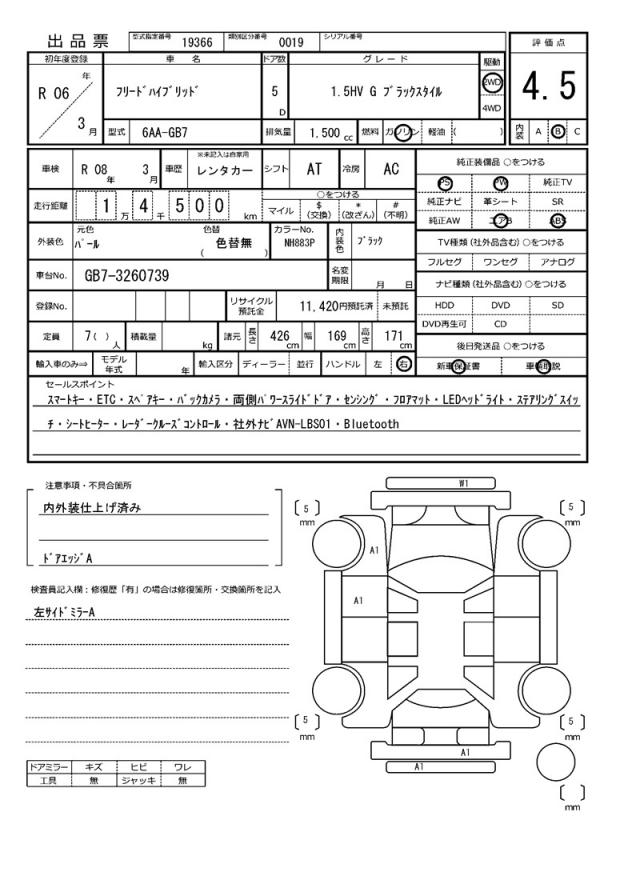 出品票
型式指定番号 19366 類別区分番号 0019 シリアル番号
評価点
初年度登録 車名 ドア数 グレード 駆動
R 06 年 3 月
ﾌﾘｰﾄﾞﾊｲﾌﾞﾘｯﾄﾞ 5 D 1.5HV G ﾌﾞﾗｯｸｽﾀｲﾙ 2WD 4WD
4.5
型式 6AA-GB7 排気量 1.500 cc 燃料 ガソリン 軽油 ( )
内装 A B C
車検 R 08 年 3 月 車歴 ※未記入は自家用 レンタカー シフト AT 冷房 AC
純正装備品 ○をつける
PS PW 純正TV
純正ナビ 革シート SR
純正AW エアB ABS
走行距離 1 万 4 千 5 0 0 km
○をつける
マイル $ (交換) * (改ざん) # (不明)
外装色 元色 ﾊﾟｰﾙ 色替 ( 色替無 ) カラーNo. NH883P 内装色 ﾌﾞﾗｯｸ
TV種類 (社外品含む) ○をつける
フルセグ ワンセグ アナログ
車台No. GB7-3260739 名変期限 月 日
ナビ種類 (社外品含む) ○をつける
HDD DVD SD
DVD再生可 CD
登録No. リサイクル預託金 11,420円預託済 未預託
定員 7( ) 人 積載量 kg 諸元 長さ 426 cm 幅 169 cm 高さ 171 cm
後日発送品 ○をつける
新車保証書 車輌取説
輸入車のみ⇨ モデル年式 年 輸入区分 ディーラー 並行 ハンドル 左 右
セールスポイント
ｽﾏｰﾄｷｰ・ETC・ｽﾍﾟｱｷｰ・ﾊﾞｯｸｶﾒﾗ・両側ﾊﾟﾜｰｽﾗｲﾄﾞﾄﾞｱ・ｾﾝｼﾝｸﾞ・ﾌﾛｱﾏｯﾄ・LEDﾍｯﾄﾞﾗｲﾄ・ｽﾃｱﾘﾝｸﾞｽｲｯ
ﾁ・ｼｰﾄﾋｰﾀｰ・ﾚｰﾀﾞｰｸﾙｰｽﾞｺﾝﾄﾛｰﾙ・社外ﾅﾋﾞAVN-LBS01・Bluetooth
注意事項・不具合箇所
内外装仕上げ済み
ﾄﾞｱｴｯｼﾞA
検査員記入欄：修復歴「有」の場合は修復箇所・交換箇所を記入
左ｻｲﾄﾞﾐﾗｰA
W1
[ 5 ] mm
[ 5 ] mm
A1
A1
[ 5 ] mm
[ 5 ] mm
A1
A1
[ ] mm
ドアミラー キズ ヒビ ワレ
工具 無 ジャッキ 無